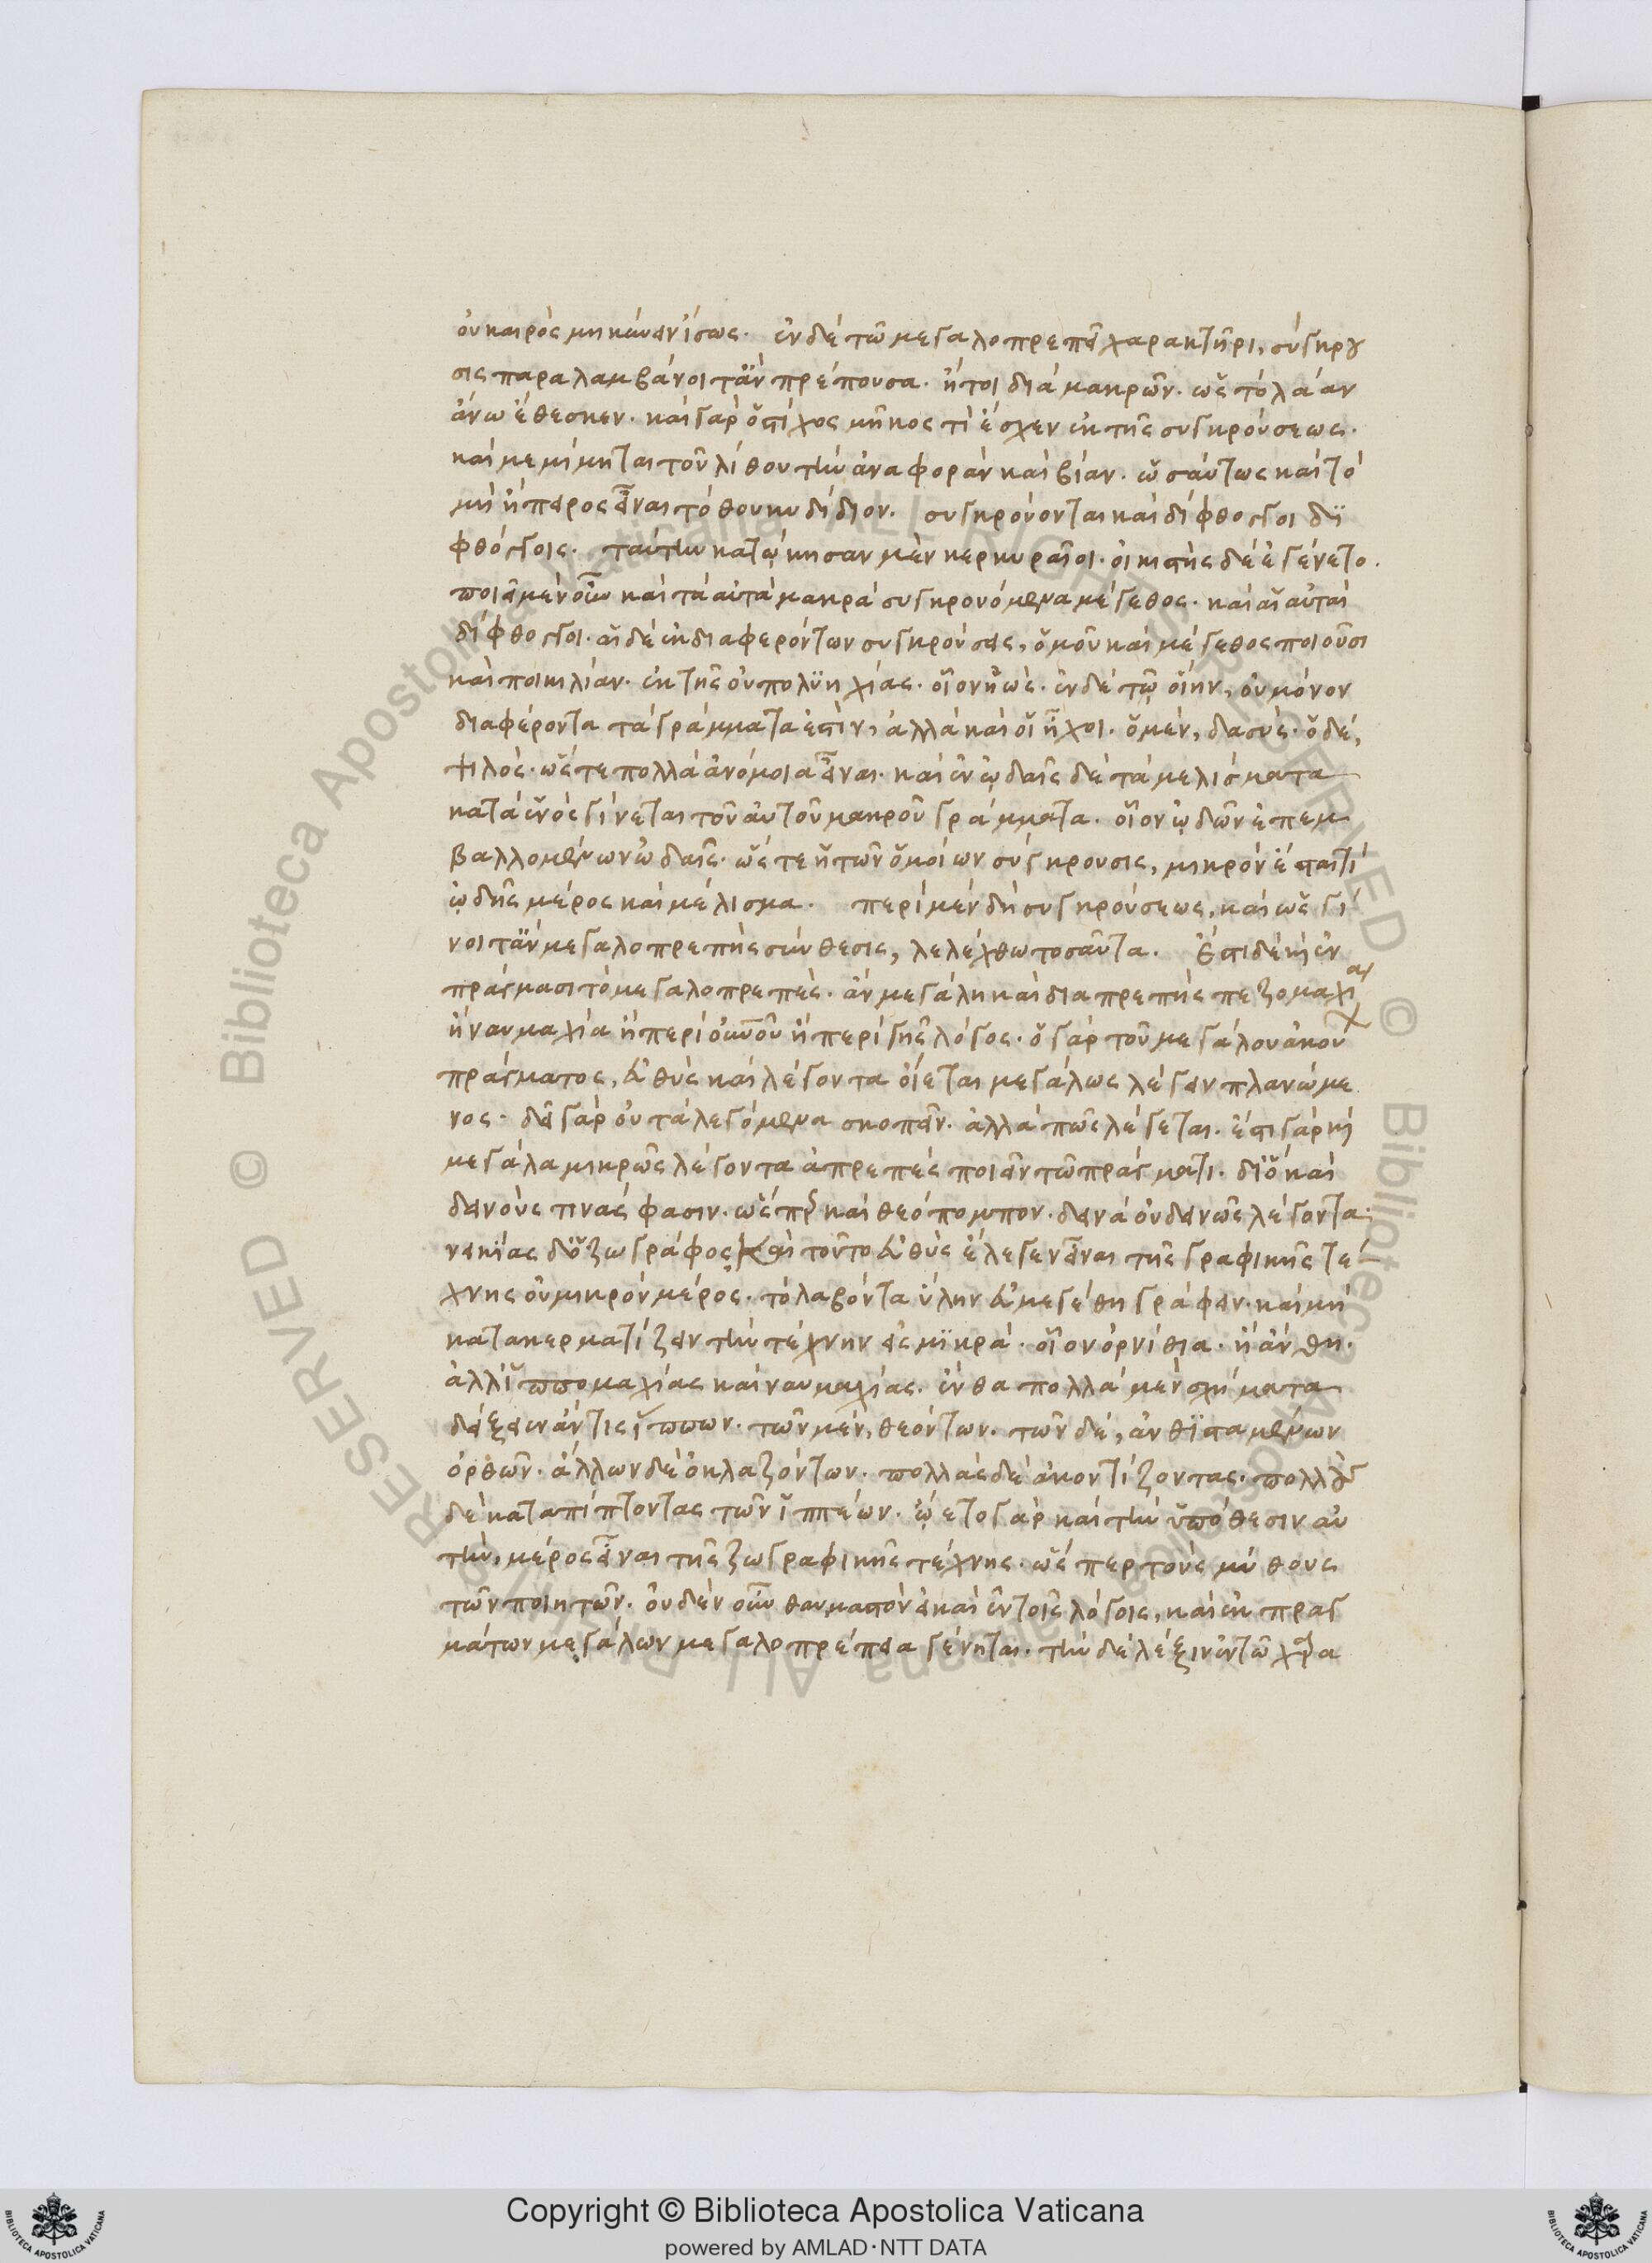 οὐ καιρὸς μηκύνειν ἴσως. ἐν δὲ τῶ μεγαλοπρεπεῖ χαρακτῆρι, σύγκρου
σις παραλαμβάνοιτ' ἂν πρέπουσα. ἤτοι διὰ μακρῶν. ὡς τὸ λᾶαν
ἄνω ὤθεσκεν. καὶ γὰρ ὁ στίχος μῆκός τι ἔσχεν ἐκ τῆς συγκρούσεως.
καὶ μεμίμηται τοῦ λίθου τὴν ἀναφορὰν καὶ βίαν. ὡσαύτως καὶ τὸ
μὴ ἤπειρος εἶναι τὸ θουκυδίδιον. συγκρούονται καὶ δίφθογγοι δι
φθόγγοις. ταύτην κατῴκησαν μὲν κερκυραῖοι. οἰκιστὴς δὲ ἐγένετο.
ποιεῖ μὲν οὖν καὶ τὰ αὐτὰ μακρὰ συγκρουόμενα μέγεθος. καὶ αἱ αὐταὶ
δίφθογγοι. αἱ δὲ ἐκ διαφερόντων συγκρούσεις, ὁμοῦ καὶ μέγεθος ποιοῦσι
καὶ ποικιλίαν. ἐκ τῆς οὐ πολυηχίας. οἷον ἠώς. ἐν δὲ τῷ οἵην, οὐ μόνον
διαφέροντα τὰ γράμματα ἐστὶν, ἀλλὰ καὶ οἱ ἦχοι. ὁ μὲν, δασύς. ὁ δὲ,
ψιλός. ὥστε πολλὰ ἀνόμοια εἶναι. καὶ ἐν ᾠδαῖς δὲ τὰ μελίσματα
κατὰ ἑνὸς γίνεται τοῦ αὐτοῦ μακροῦ γράμματα. οἷον ᾠδῶν ἐπεμ
βαλλομένων ᾠδαῖς. ὥστε ἡ τῶν ὁμοίων σύγκρουσις, μικρὸν ἔσται τί
ᾠδῆς μέρος καὶ μέλισμα. περὶ μὲν δὴ συγκρούσεως, καὶ ὡς γί
νοιτ' ἂν μεγαλοπρεπὴς σύνθεσις, λελέχθω τοσαῦτα. Ἔστι δὲ καὶ ἐν
πράγμασι τὸ μεγαλοπρεπές. ἂν μεγάλη καὶ διαπρεπὴς πεζομαχία
ἢ ναυμαχία ἢ περὶ οὐρανοῦ ἢ περὶ γῆς λόγος. ὁ γὰρ τοῦ μεγάλου ἀκού
πράγματος, εὐθὺς καὶ λέγοντα οἴεται μεγάλως λέγειν πλανώμε
νος. δεῖ γὰρ οὐ τὰ λεγόμενα σκοπεῖν. ἀλλὰ πῶς λέγεται. ἔστι γὰρ καὶ
μεγάλα μικρῶς λέγοντα ἀπρεπὲς ποιεῖν τῶ πράγματι. διὸ καὶ
δεινούς τινάς φασιν. ὥσπερ καὶ θεόπομπον. δεινὰ οὐ δεινῶς λέγοντα.
νικίας δ' ὁ ζωγράφος καὶ τοῦτο εὐθὺς ἔλεγεν εἶναι τῆς γραφικῆς τέ
χνης οὐ μικρὸν μέρος. τὸ λαβόντα ὕλην εὐμεγέθη γράφειν. καὶ μὴ
κατακερματίζειν τὴν τέχνην εἰς μικρά. οἷον ὀρνίθια. ἢ ἄνθη.
ἀλλ' ἱππομαχίας καὶ ναυμαχίας. ἔνθα πολλὰ μὲν σχήματα
δείξειεν ἄν τις ἵππων. τῶν μὲν, θεόντων. τῶν δὲ, ἀνθισταμένων
ὀρθῶν. ἄλλων δὲ ὀκλαζόντων. πολλὰς δὲ ἀκοντίζοντας. πολλοὺς
δὲ καταπίπτοντας τῶν ἱππέων. ᾤετο γὰρ καὶ τὴν ὑπόθεσιν αὐ
τὴν, μέρος εἶναι τῆς ζωγραφικῆς τέχνης. ὥσπερ τοὺς μύθους
τῶν ποιητῶν. οὐδὲν οὖν θαυμαστὸν εἰ καὶ ἐν τοῖς λόγοις, καὶ ἐκ πραγ
μάτων μεγάλων μεγαλοπρέπεια γένηται. τὴν δὲ λέξιν ἐν τῶ χαρα
Copyright © Biblioteca Apostolica Vaticana
powered by AMLAD·NTT DATA